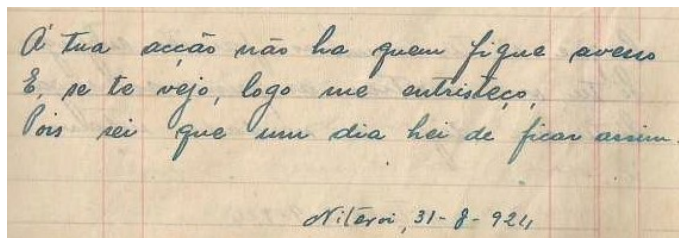 Á tua acção não ha quem fique avesso
E, se te vejo, logo me entristeço,
Pois sei que um dia hei de ficar assim.
Niteroi, 31-8-924